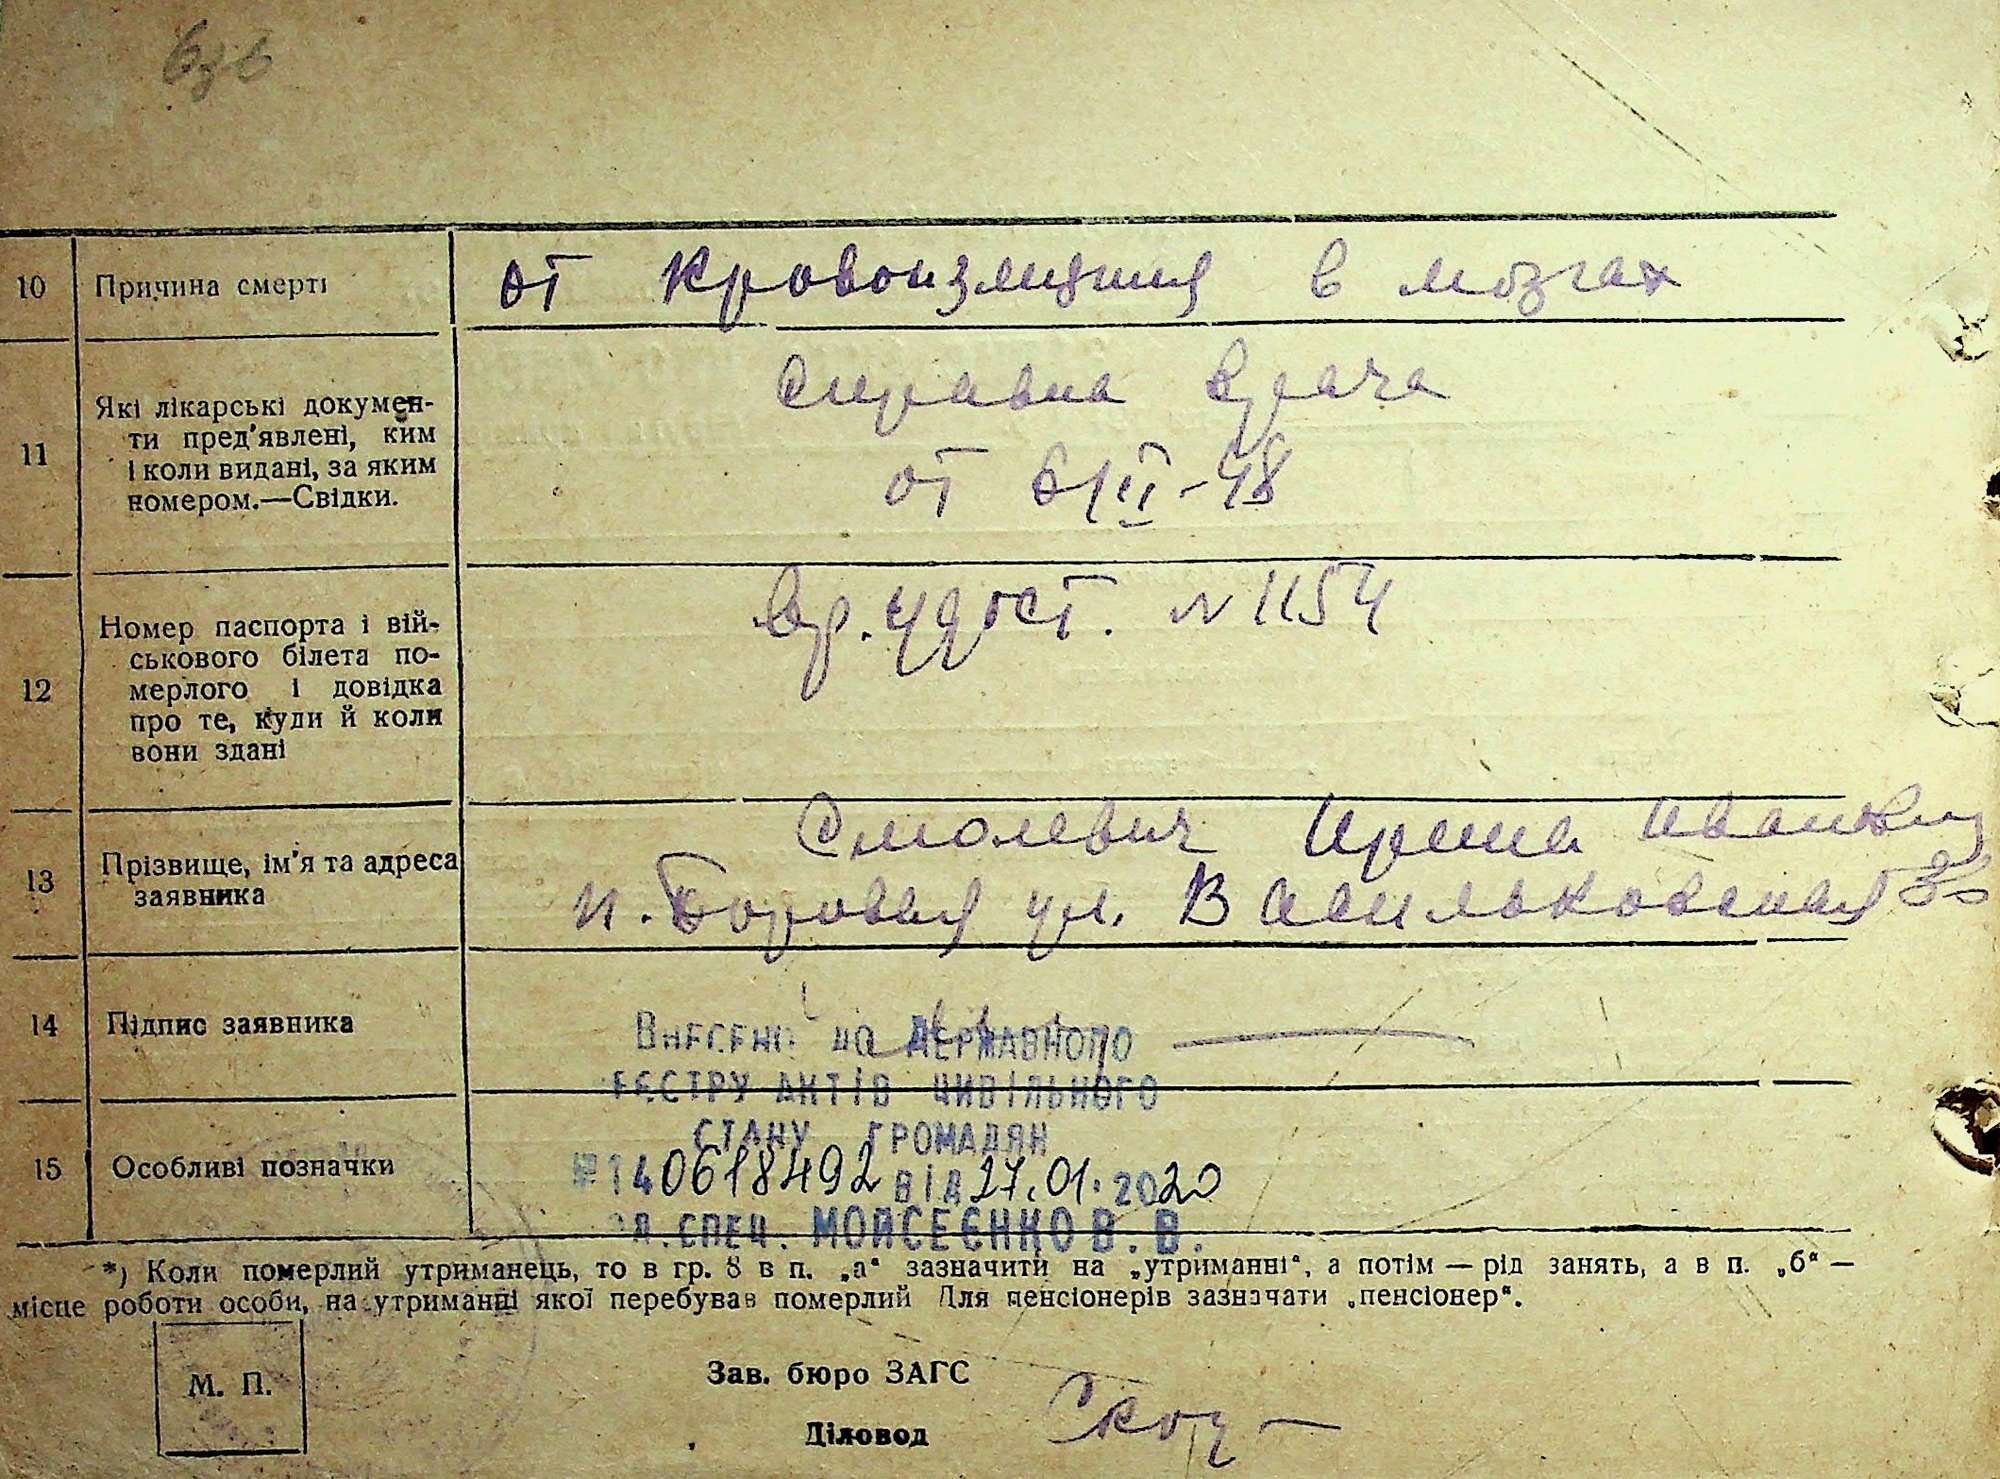 10 Причина смерті от кровоизлияния в мозгах
11 Які лікарські докумен-
ти пред'явлені, ким
і коли видані, за яким
номером.—Свідки.
Справка врача
от 6/II-48
12 Номер паспорта і вій-
ськового білета по-
мерлого і довідка
про те, куди й коли
вони здані
Вр. удост. N 1154
13 Прізвище, ім'я та адреса
заявника
Смолевич Ирина Ивановна
п. Боровая ул. Васильковская
14 Підпис заявника
Внесено до Державного
реєстру актів цивільного
стану громадян
15 Особливі позначки
№ 140618492 від 27.01.2020
гл. спец. Мойсеєнко В. В.
*) Коли померлий утриманець, то в гр. 8 в п. „а“ зазначити на „утриманні“, а потім — рід занять, а в п. „б“ —
місце роботи особи, на утриманні якої перебував померлий Для пенсіонерів зазначати „пенсіонер“.
М. П.
Зав. бюро ЗАГС
Діловод